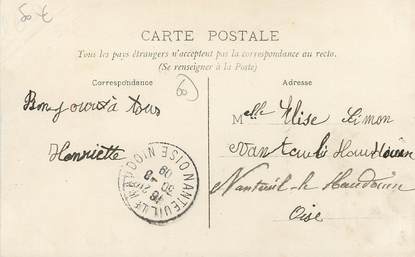 50 €
CARTE POSTALE
Tous les pays étrangers n'acceptent pas la correspondance au recto.
(Se renseigner à la Poste)
Correspondance
Adresse
Bonjour à tous
Henriette
Melle Elise Simon
Nanteuil Haudouin
Nanteuil-le Haudouin
Oise
NANTEUIL-LE-H
OISE